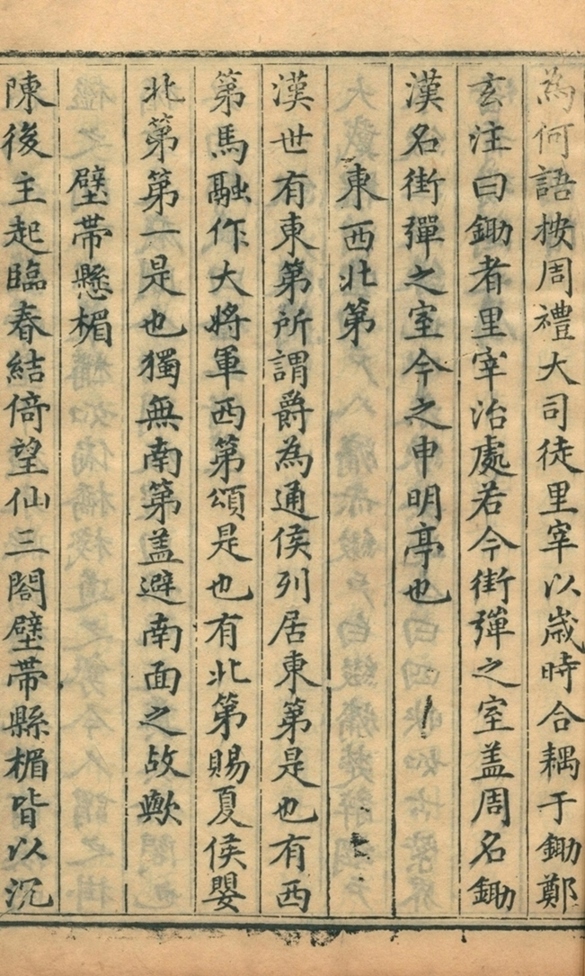 為何語按周禮大司徒里宰以歲時合耦于鋤鄭
玄注曰鋤者里宰治處若今街彈之室盖周名鋤
漢名街彈之室今之申明亭也
東西北第
漢世有東第所謂爵為通侯列居東第是也有西
第馬融作大將軍西第頌是也有北第賜夏侯嬰
北第第一是也獨無南第盖避南面之故歟
壁帶懸楣
陳後主起臨春結倚望仙三閣壁帶縣楣皆以沉